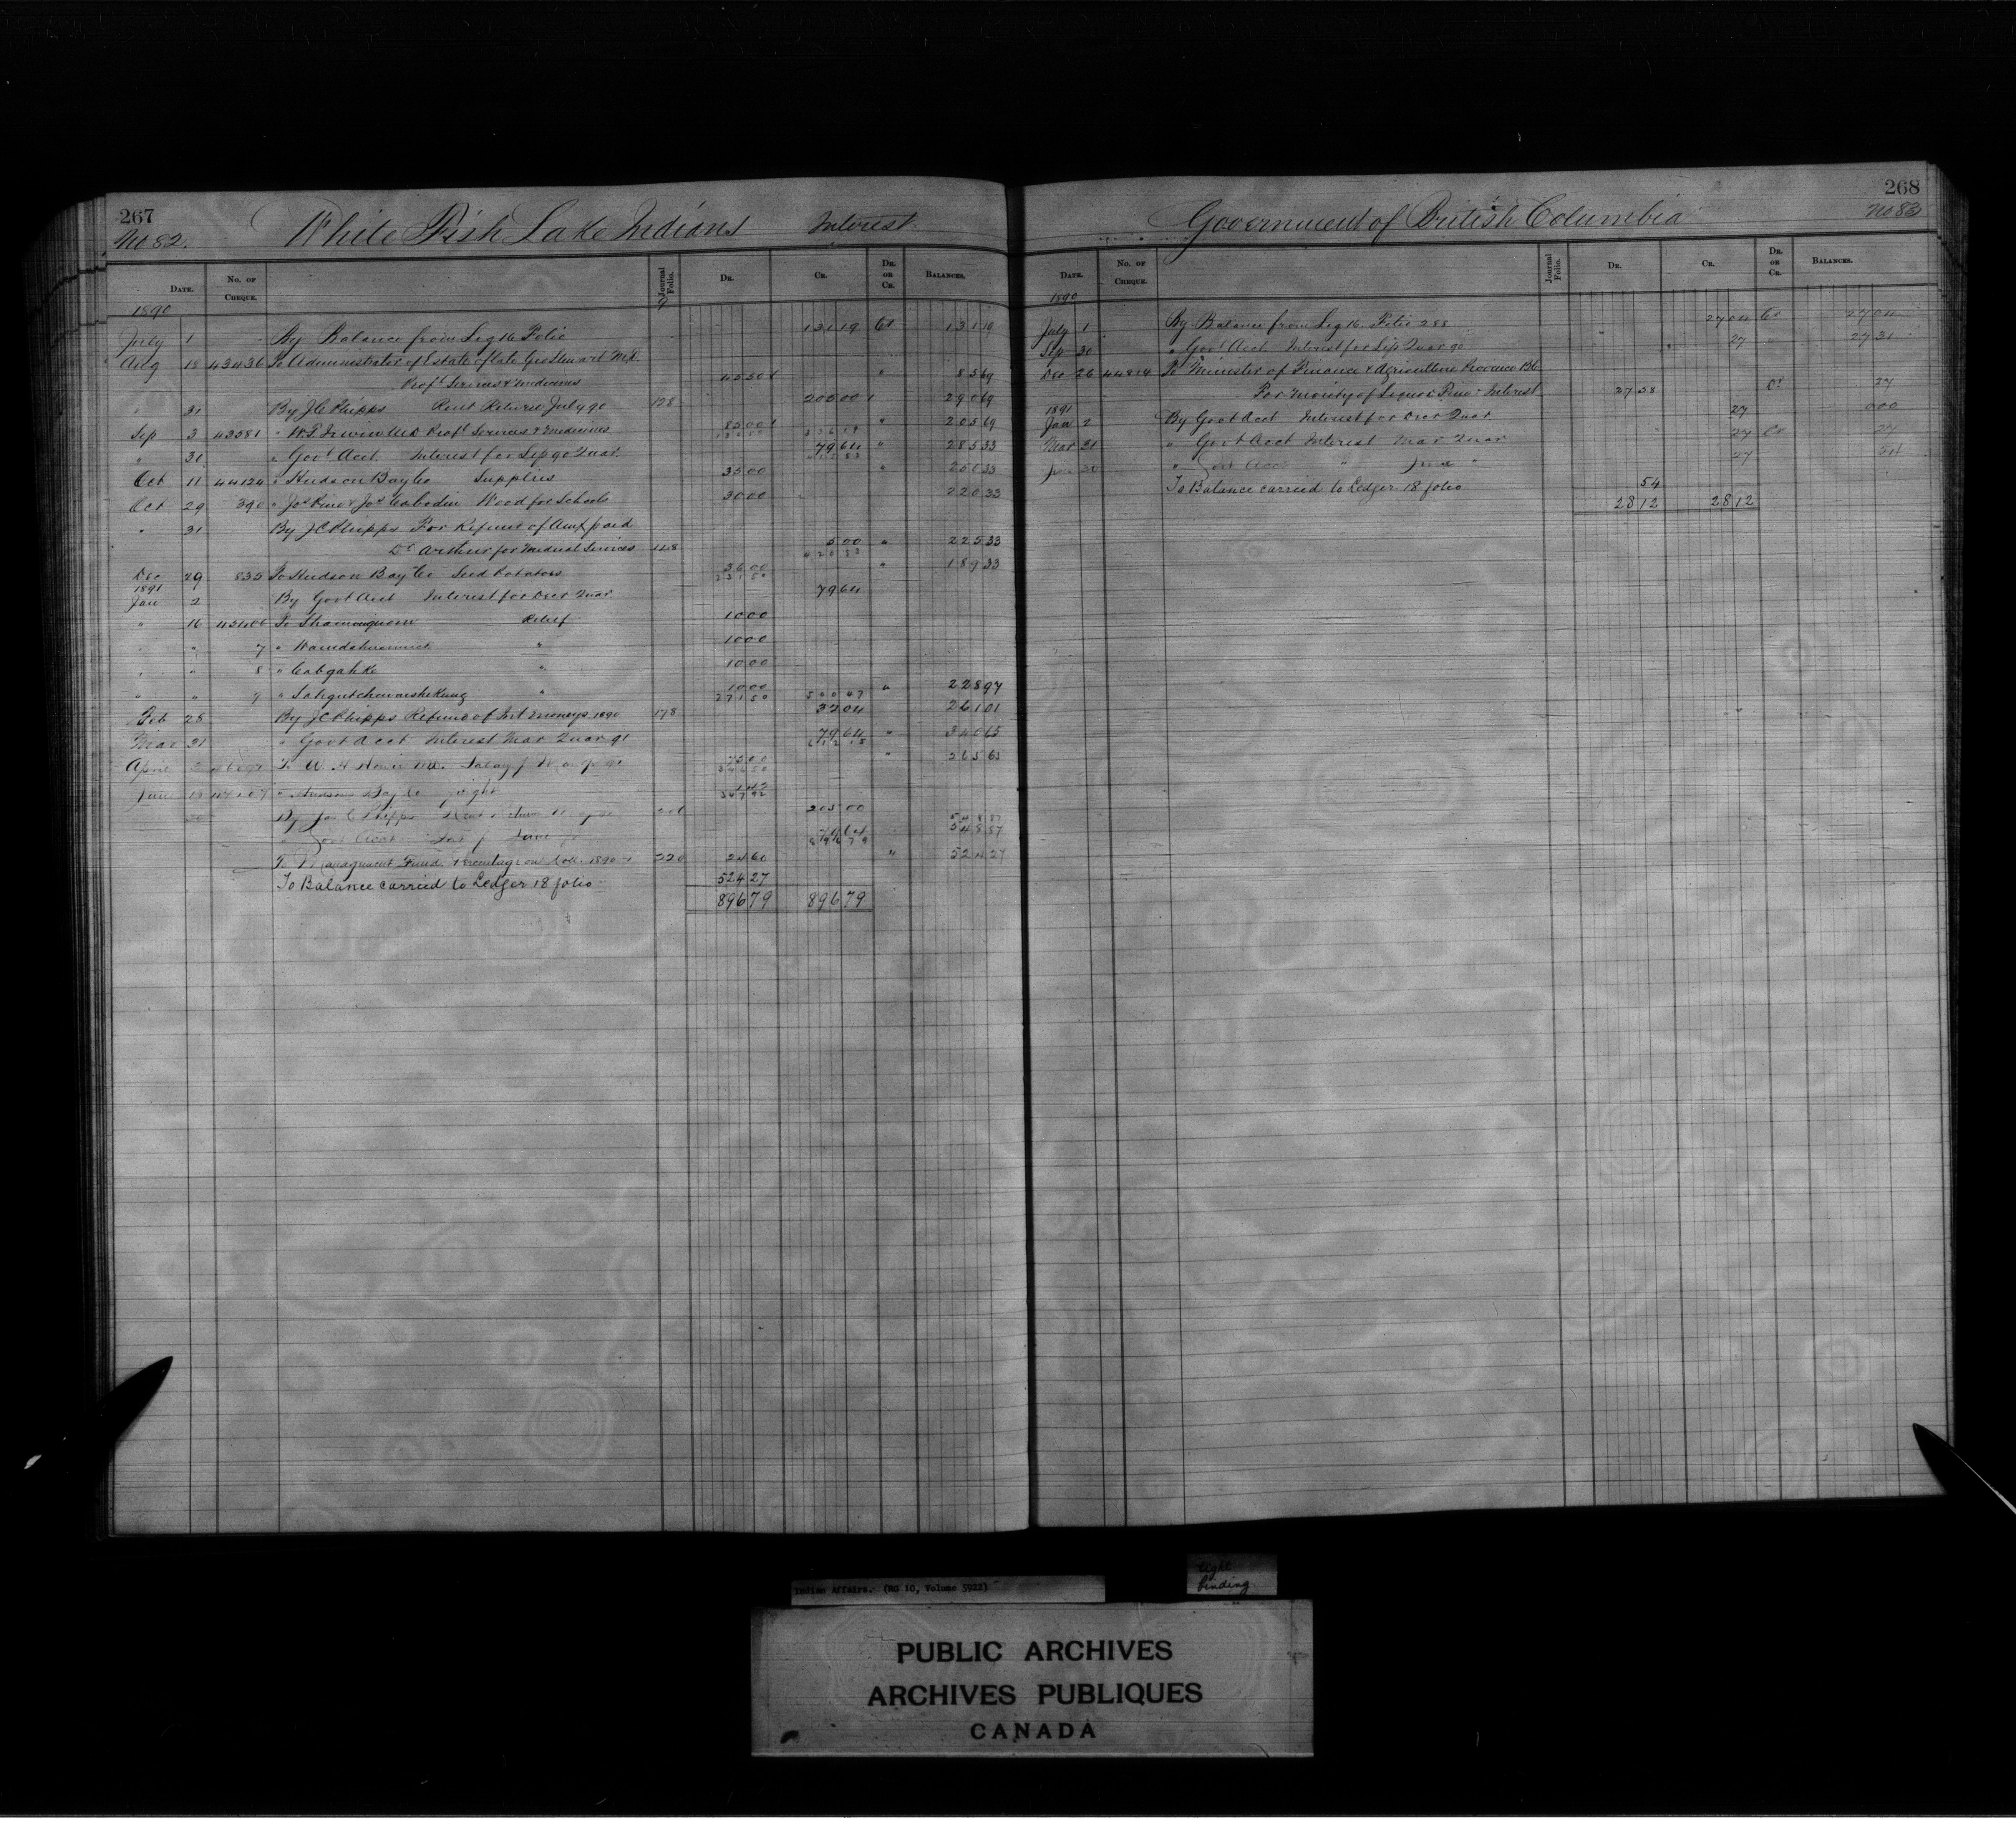 267
No 82.
White Fish Lake Indians Interest.
Date. No. of Cheque. Journal Folio. Dr. Cr. Dr. or Cr. Balances.
1890
July 1 By Balance from Leg 16 Folio 131 19 Cr 131 19
Aug 18 43436 To Administrator of Estate of late Geo Stewart M.D.
Proft Services & Medicines 45 50 " 85 69
" 31 By J C Phipps Rent Return July 90 128 205 00 290 69
Sep 3 43581 " M.D. Proft Services & Medicines 85 00 " 205 69
" 31 " Govt Acct Interest for Sep 90 Quar. 79 64 " 285 33
Oct 11 44124 " Hudson Bay Co Supplies 35 00 " 250 33
Oct 29 390 " Jos & Jos Wood for Schools 30 00 220 33
" 31 By J C Phipps For Refund of Amt paid
Dr Arthur for Medical Services 148 5 00 " 225 33
Dec 29 835 To Hudson Bay Co Seed Potatoes 36 00 " 189 33
1891
Jan 2 By Govt Acct Interest for Decr Quar. 79 64
" 16 To Relief 10 00
" " 7 " " 10 00
" " 8 " " 10 00
" " 9 " " 10 00 " 228 97
Feb 28 By J C Phipps Refund of Int Moneys 1890 178 32 04 261 01
Mar 31 " Govt Acct Interest Mar Quar 91 79 64 " 340 65
April To W. H. M.D. 75 00 " 265 65
June " Hudson Bay Co
By Jas C Phipps 205 00
" Govt Acct June 79 64 548 87
To Management Fund Percentage on Coll. 1890-1 220 24 60 " 524 27
To Balance carried to Ledger 18 folio 524 27
896 79 896 79
268
No 83
Government of British Columbia
Date. No. of Cheque. Journal Folio. Dr. Cr. Dr. or Cr. Balances.
1890
July 1 By Balance from Leg 16 Folio 288 27 04 Cr 27 04
Sep 30 " Govt Acct Interest for Sep Quar 90 27 " 27 31
Dec 26 44814 To Minister of Finance & Agriculture Province B.C.
For moiety of Liquor Fines & Interest 27 58 Dr 27
1891
Jan 2 By Govt Acct Interest for Decr Quar 27 000
Mar 31 " Govt Acct Interest Mar Quar 27 Cr 27
June 30 " Govt Acct " June " 27 54
To Balance carried to Ledger 18 folio 54
28 12 28 12
Indian Affairs. (RG 10, Volume 5922)
tight
binding
PUBLIC ARCHIVES
ARCHIVES PUBLIQUES
CANADA